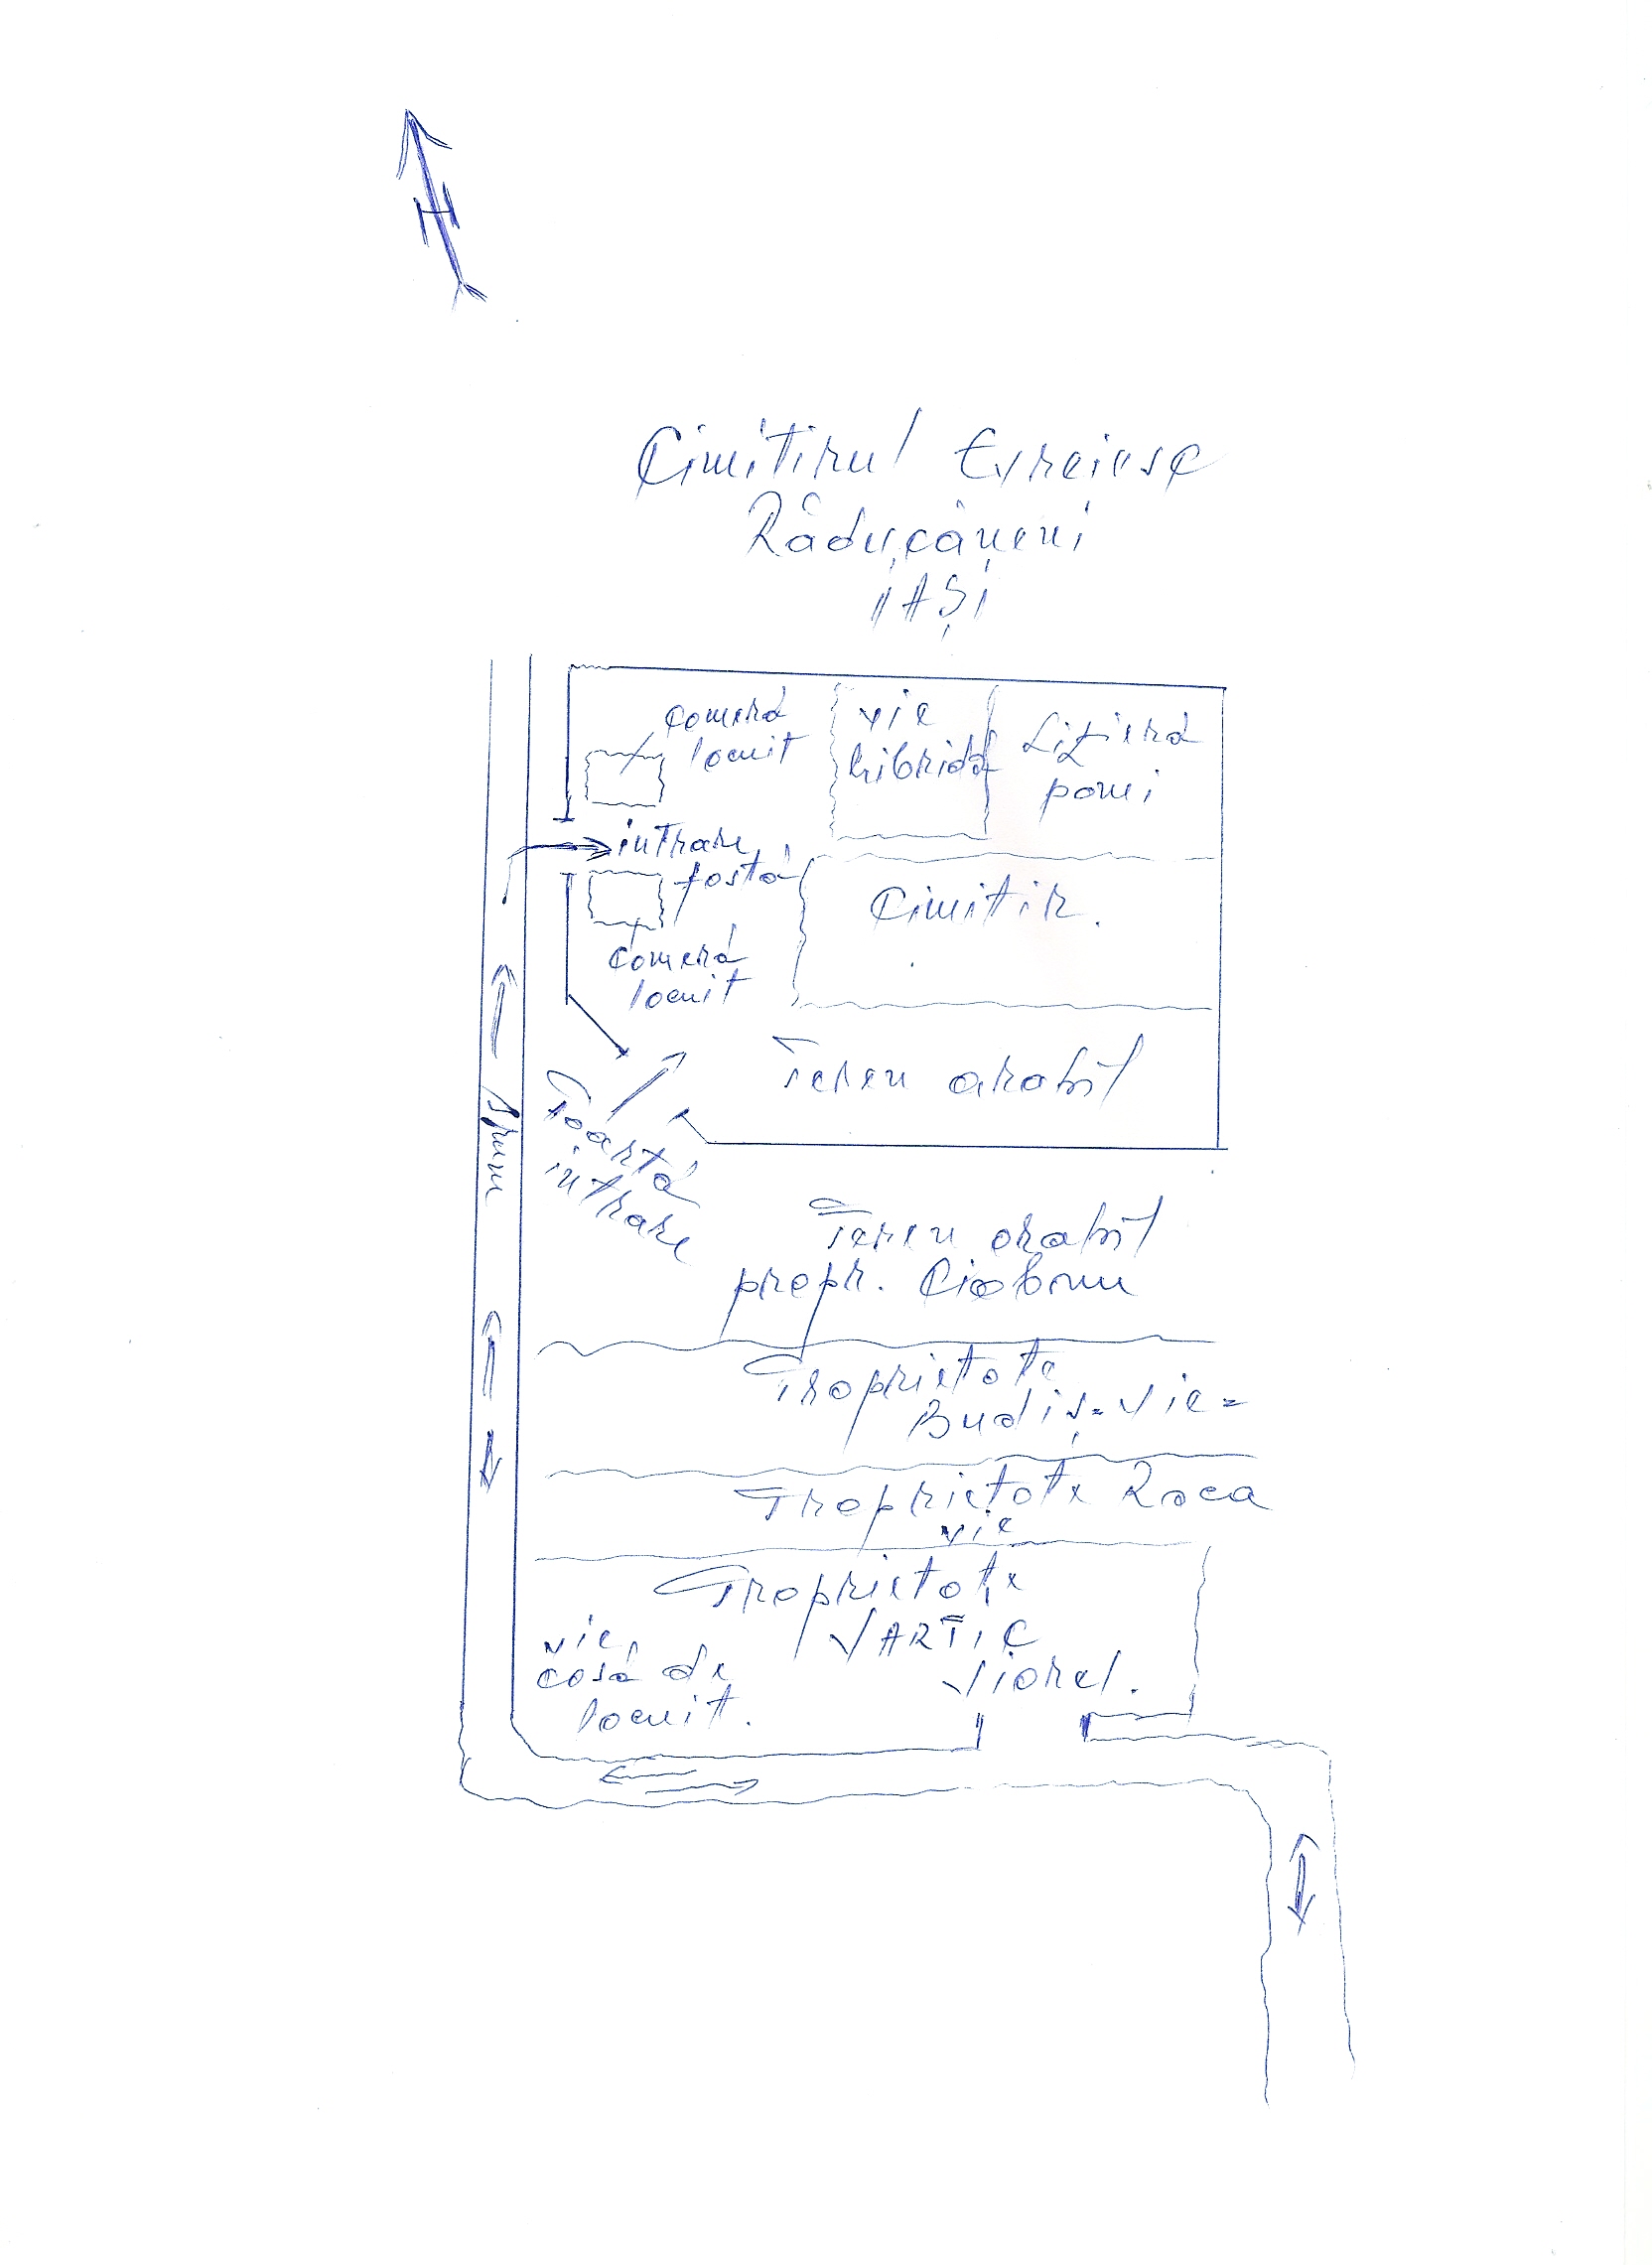 N
Cimitirul Evreiesc
Răducăneni
IAȘI
cameră
locuit
vie
hibridă
pomi
intrare
fostă
Cimitir.
cameră
locuit
Teren arabil
Drum
Poartă
intrare
Teren arabil
propr. Ciobanu
Proprietate
Budiș = Vie =
Proprietate Roca
vie
Proprietate
VARTIC
Viorel.
vie,
casă de
locuit.